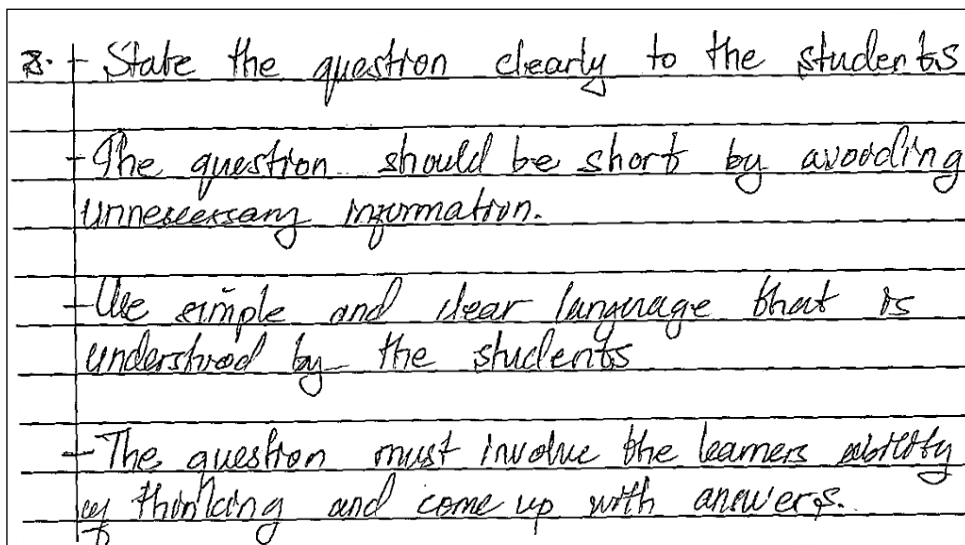 8. - State the question clearly to the students
- The question should be short by avoiding
unnescessary information.
- Use simple and clear language that is
understood by the students
- The question must involve the learners ability
of thinking and come up with answers.